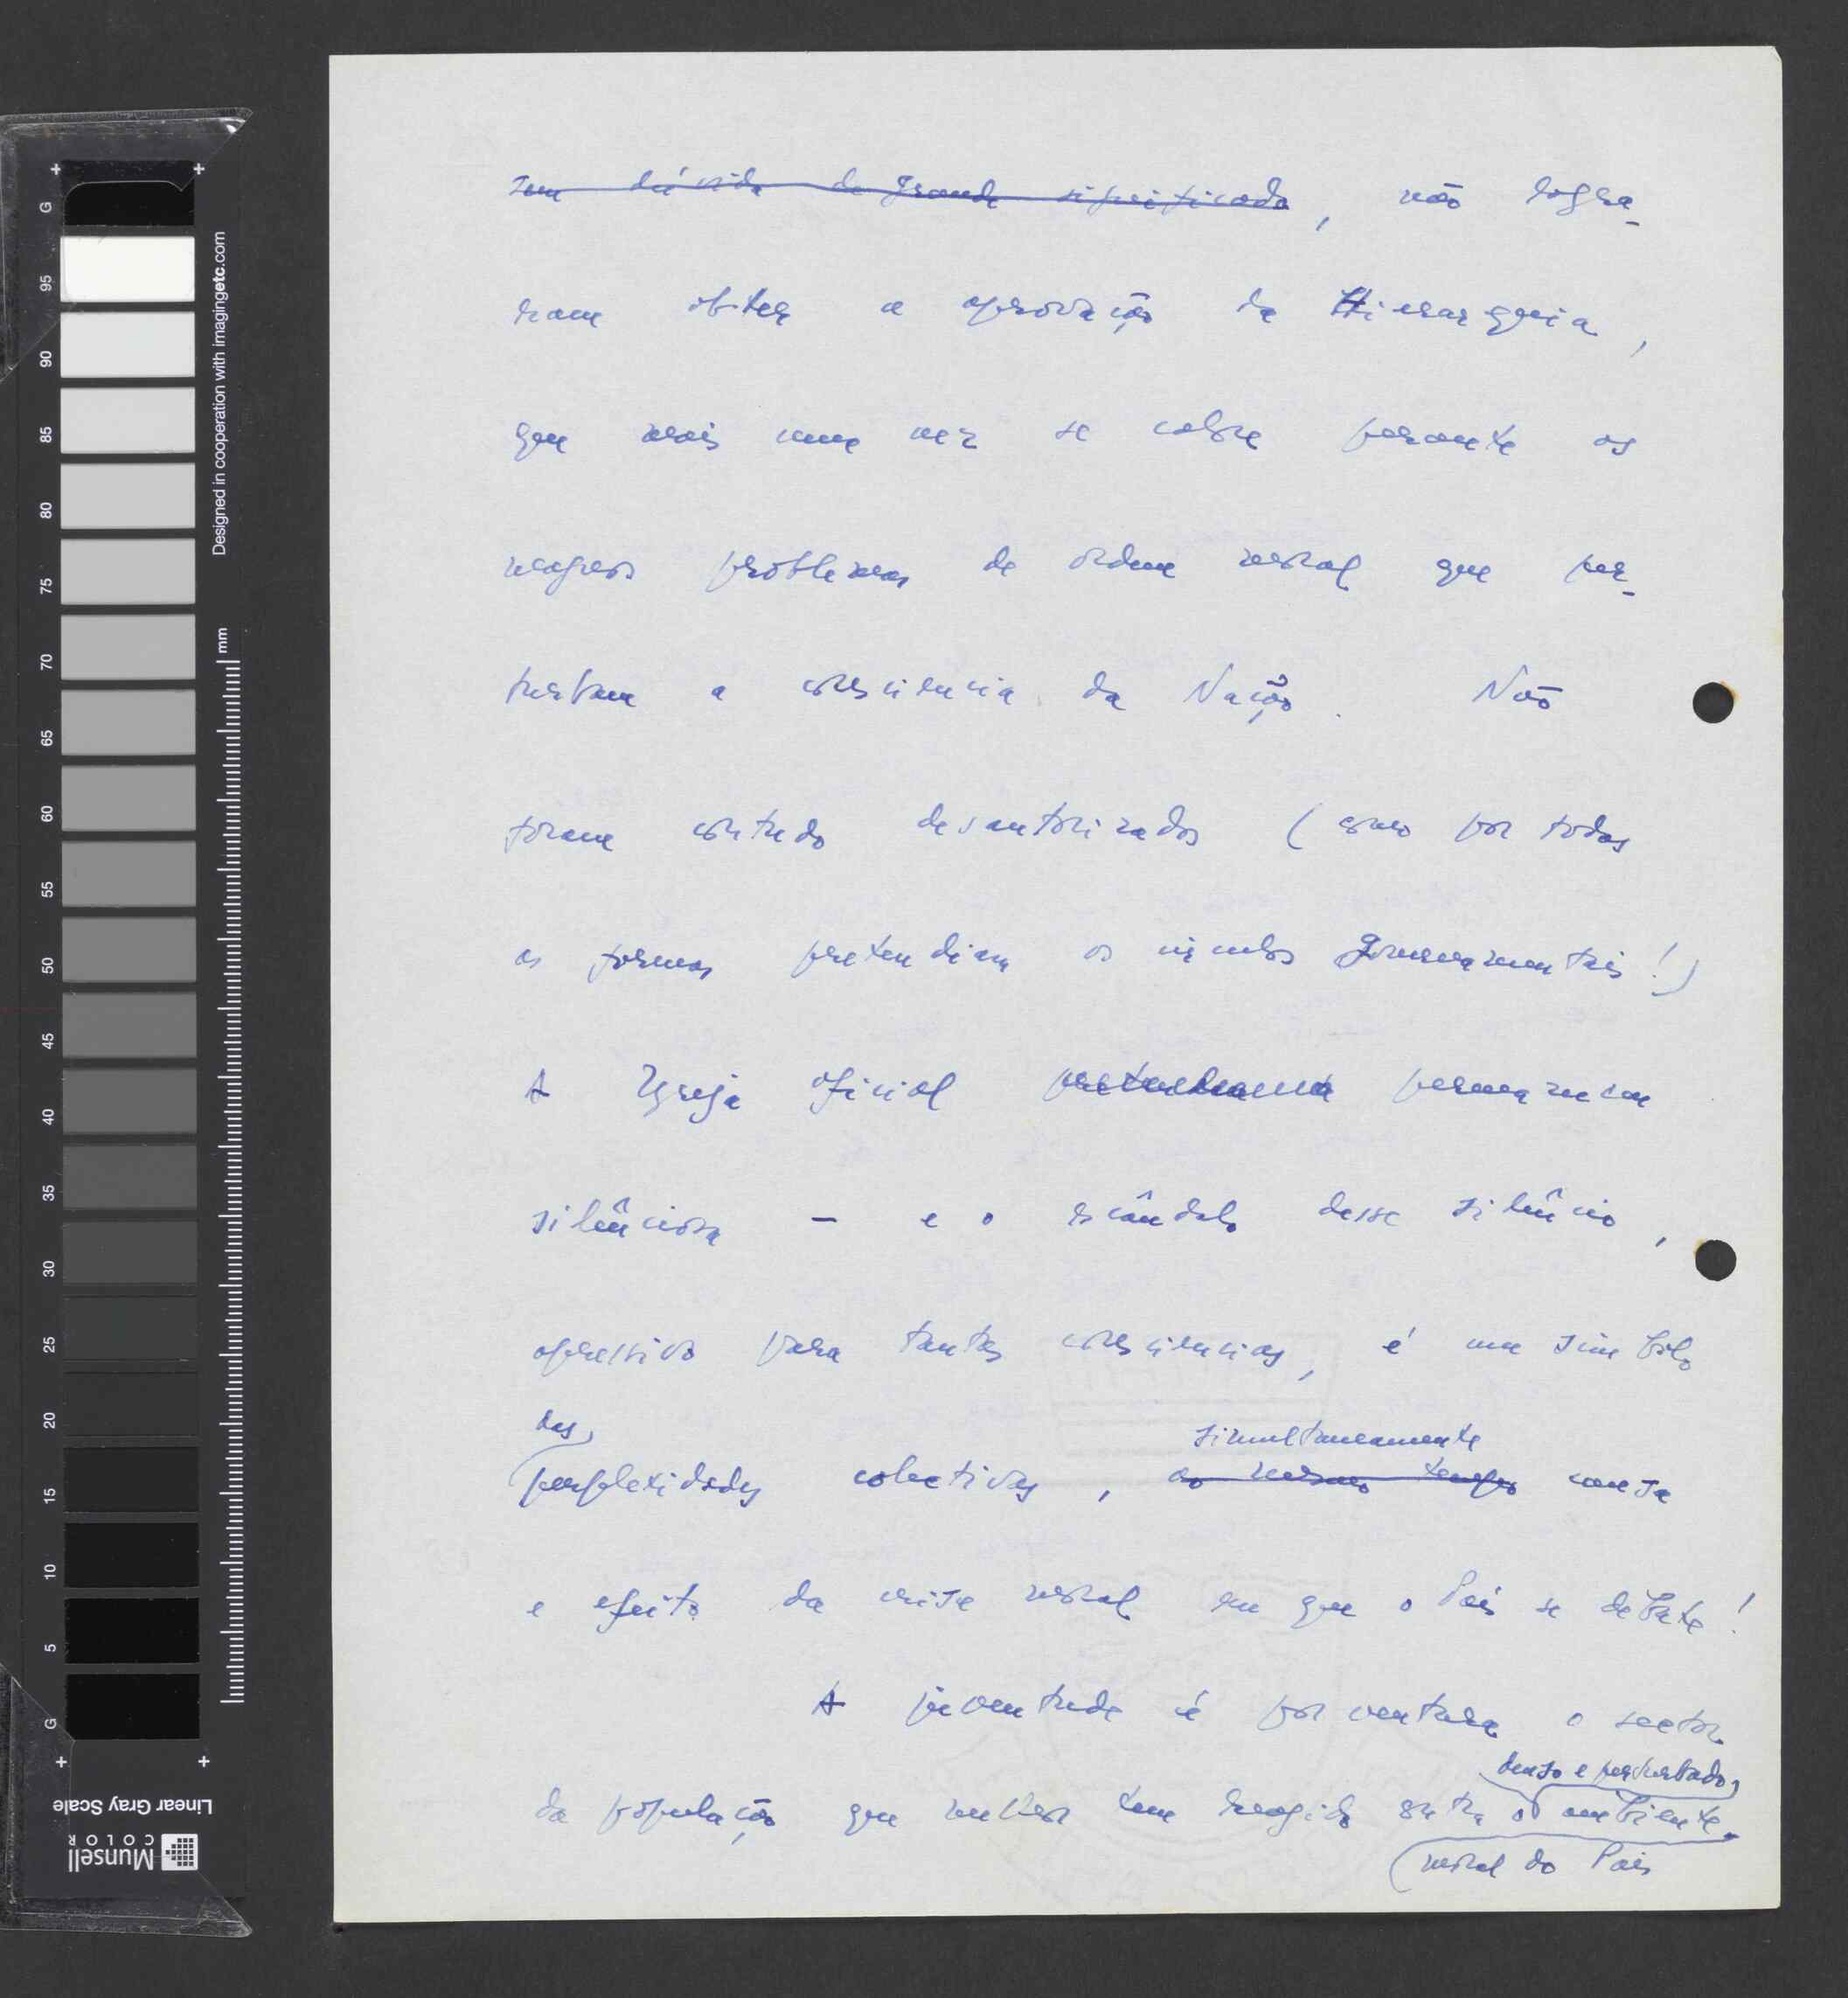 sem dúvida de grande significado, não logra-
ram obter a aprovação da Hierarquia,
que mais uma vez se cala perante os
magnos problemas de ordem moral que per-
turbam a consciencia da Nação. Não
foram contudo desautorizados (como por todas
as formas pretendiam os circulos governamentais!)
A Igreja oficial permanecem
silênciosa — e o escândalo desse silêncio,
opressivo para tantas consciencias, é um simbolo
das
simultaneamente
perplexidades colectivas, ao mesmo tempo causa
e efeito da crise moral em que o País se debate!
A juventude é porventura o sector
denso e perturbado
da população que melhor tem reagido contra o ambiente
moral do País
G 5 10 15 20 25 30 35 40 45 50 55 60 65 70 75 80 85 90 95 G
mm
Designed in cooperation with imagingetc.com
Linear Gray Scale
Munsell
COLOR